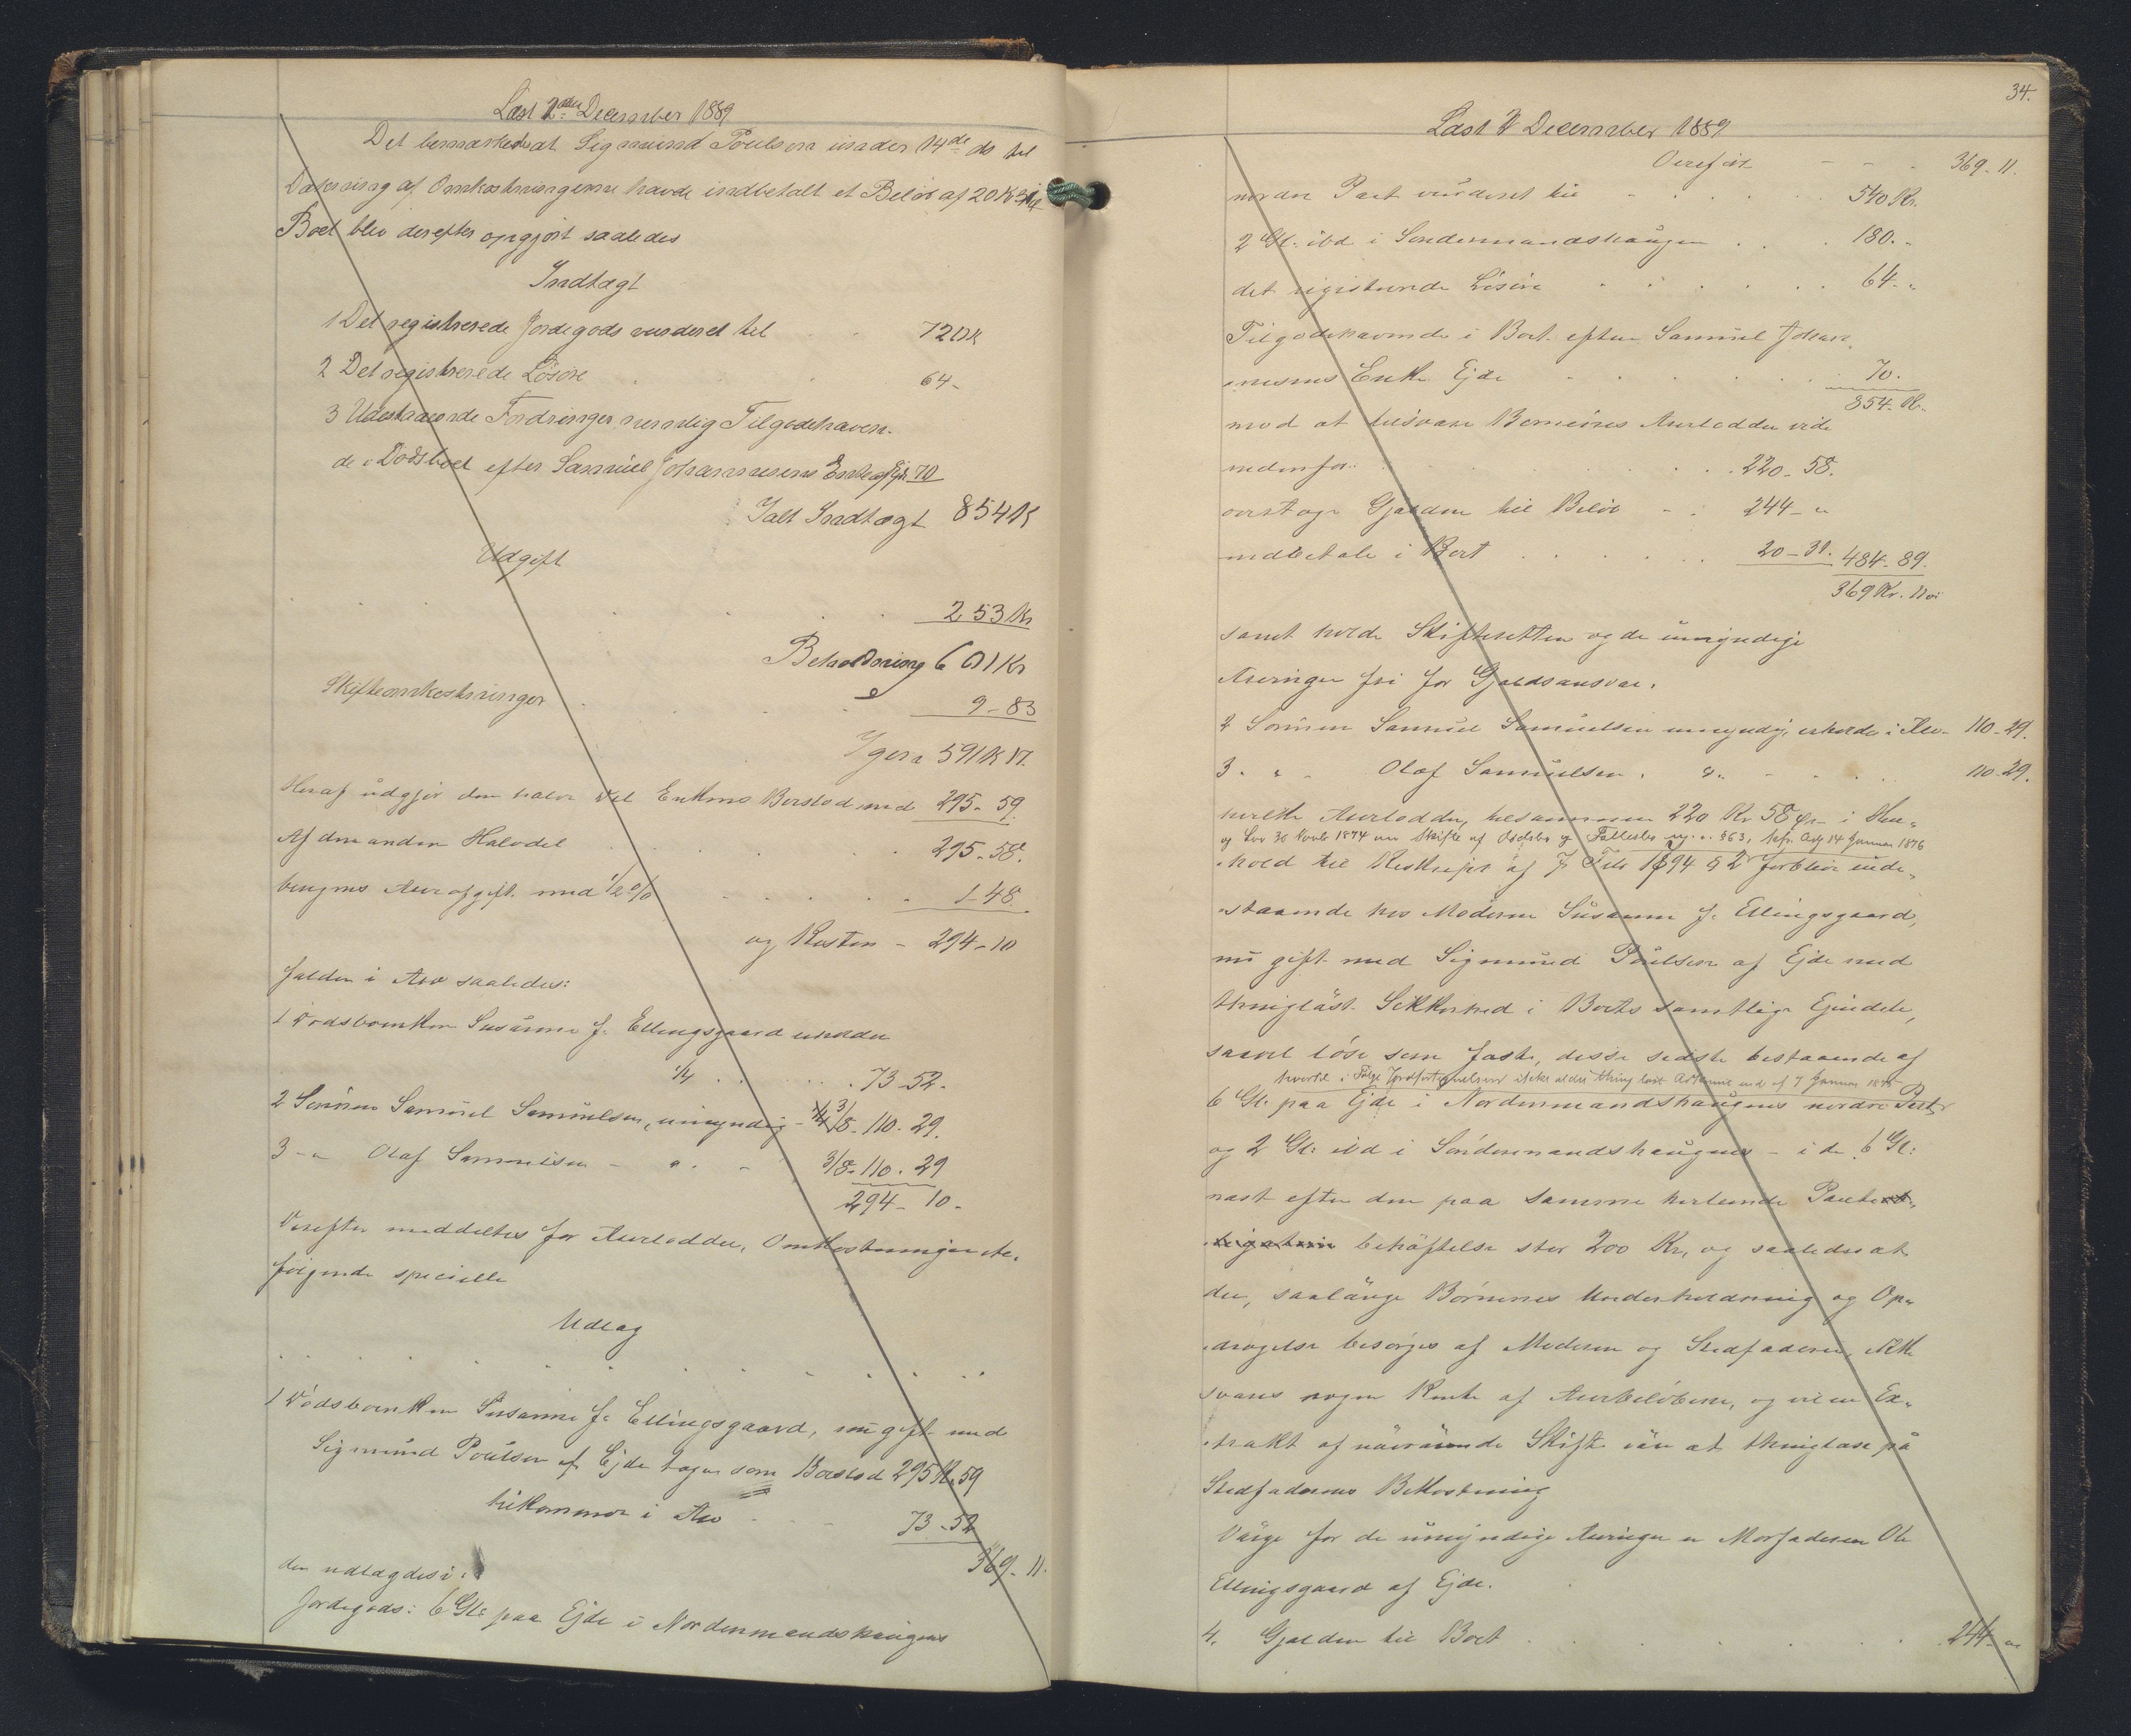 Læst 2den December 1889
Det bemærkedes at Sigmund Poulsen under 14de ds til
Dækning af Omkostningerne havde indbetalt et Beløb af 20 K 31
Boet blev derefter opgjort saaledes
Indtægt
1 Det registrerede Jordegods vurderet til 720 K
2 Det registrerede Løsøre 64 -
3 Udestaaende Fordringer nemlig Tilgodehaven-
de i Dødsboet efter Samuel Johannesens Enke af Ejde 70
Ialt Indtægt 854 K
Udgift
253 Kr
Beholdning 601 Kr
Skifteomkostninger 9 - 83
Igen 591 K 17.
Heraf udgjør den halve Del Enkens Boeslod med 295 - 59.
Af den anden Halvdel 295 - 58.
beregnes Arveafgift med 1/2 % 1 - 48.
og Resten - 294 - 10
falder i Arv saaledes:
1 Dødsboenken Susanne J. Ellingsgaard
1/4 . . 73 - 52.
2 Sønnen Samuel Samuelsen, umyndig - 3/8 - 110 - 29.
3 - " Olaf Samuelsen - " - 3/8 - 110 - 29
294 - 10 -
Derefter meddeltes for Arvelodder, Omkostninger etc.
følgende specielle
Udlæg
1 Dødsboenken Susanne J. Ellingsgaard, nu gift med
Sigmund Poulsen af Ejde tager som Boeslod 295 K 59
tilkommer i Arv - - - 73 - 52
369 - 11
der udlægdes i:
Jordegods: 6 Gl: paa Ejde i Nordenmandshaugens
34.
Læst 2 December 1889
Overført - - - 369 - 11.
nordre Part vurderet til 540 Kr.
2 Gl. ibd i Søndenmandshaugen 180. "
det registrerede Løsøre 64 - "
Tilgodehavende i Boet efter Samuel Johan-
nesens Enke Ejde 70.
854 - Kr.
mod at tilsvare Børnenes Arvelodder vide
nedenfor 220 - 58.
overtage Gjælden til Beløb 244 - "
indbetale i Boet 20 - 31. 484 - 89.
369 Kr. 11 ør
samt holde Skifteretten og de umyndige
Arvinger fri for Gjældsansvar.
2 Sønnen Samuel Samuelsen umyndig, udlægdes i Arv - 110 - 29.
3. " - Olaf Samuelsen. " - 110 - 29.
hvilke Arvelodder, tilsammen 220 Kr 58 Ør - i Hen-
og Lov 30 Novbr 1874 om Skifte af Dødsbo og Fællesbo m. v. § 63, kfr. Adg 14 Januar 1876
hold til Reskript af 7 Feb 1694 § 2 forbliver inde-
staaende hos Moderen Susanne J. Ellingsgaard,
nu gift med Sigmund Poulsen af Ejde med
thinglæst Sikkerhed i Boets samtlige Ejendele,
saavel løse som faste, disse sidste bestaaende af
hvortil i Følge Jordfortegnelsen ikke er thinglæst Adkomst end af 7 Januar
6 Gl. paa Ejde i Nordenmandshaugens nordre Part
og 2 Gl: ibd i Søndenmandshaugens - i de 6 Gl:
næst efter den paa samme hvilende Pante-
behæftelse stor 200 Kr, og saaledes at
der, saalænge Børnenes Underholdning og Op-
dragelse besørges af Moderen og Stedfaderen, ikke
svares nogen Rente af Arvebeløbene, og vil en Ex-
trakt af nærværende Skifte være at thinglæse på
Stedfaderens Bekostning
Værge for de umyndige Arvinger er Morfaderen Ole
Ellingsgaard af Ejde.
4. Gjælden til Boet 244 - "